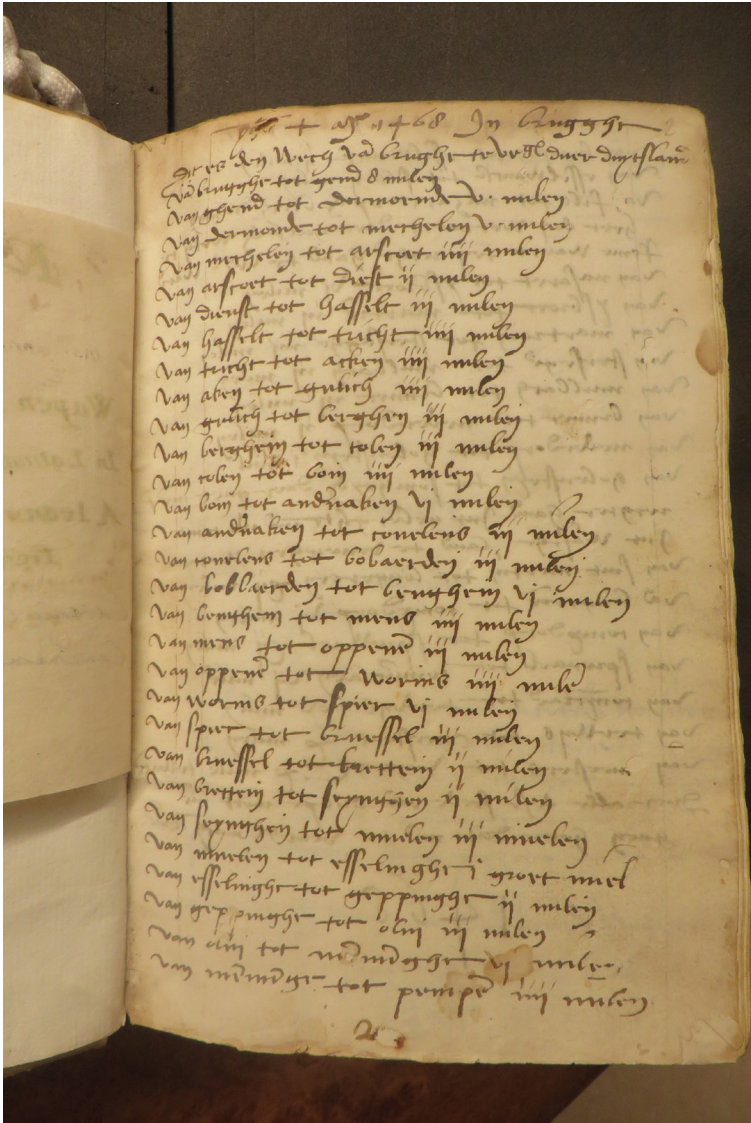 + a° 1468 In brugghe
dit es den wech vā brughe te duer duytslant
vā brugghe tot gend 8 milen
van ghend tot dermoende v milen
van dermonde tot mechelen v milen
van mechelen tot arscoet iiij milen
van arscoet tot diest ij milen
van dienst tot hasselt iij milen
van hasselt tot tricht iiij milen
van tricht tot acken iiij milen
van aken tot gulich iiij milen
van gulich tot berghen iij milen
van berghein tot colen iij milen
van colen tot boin iiij milen
van boin tot andernaken vi milen
van andernaken tot covelens iij milen
van covelens tot bobaerden iij milen
van bobbaerden tot benghein vj milen
van benghem tot mens iiij milen
van mens tot oppenē iij milen
van oppenē tot worms iiij milē
van worms tot spier vj milen
van spier tot bruessel iij milen
van bruessel tot brettein ij milen
van brettein tot feynghen ij milen
van feynghein tot milen
van tot esselinghe i groet miel
van esselinghe tot geppinghe ij milen
van geppinghe tot olm iij milen
van olm tot vi milen
van tot pempē iiij milen